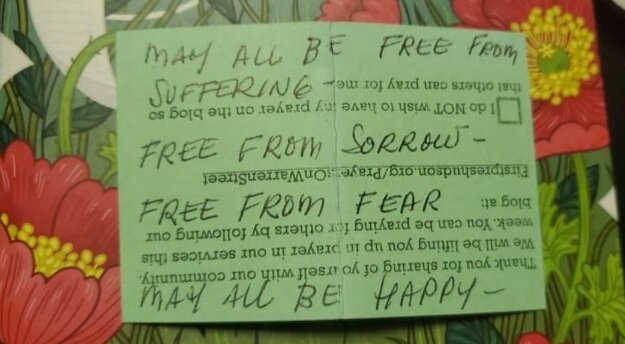 MAY ALL BE FREE FROM
SUFFERING -
FREE FROM SORROW -
FREE FROM FEAR
MAY ALL BE HAPPY -
Thank you for sharing of yourself with our community.
We will be lifting you up in prayer in our services this
week. You can be praying for others by following our
blog at:
Firstpreshudson.org/PrayersOnWarrenStreet
I do NOT wish to have my prayer on the blog so
that others can pray for me